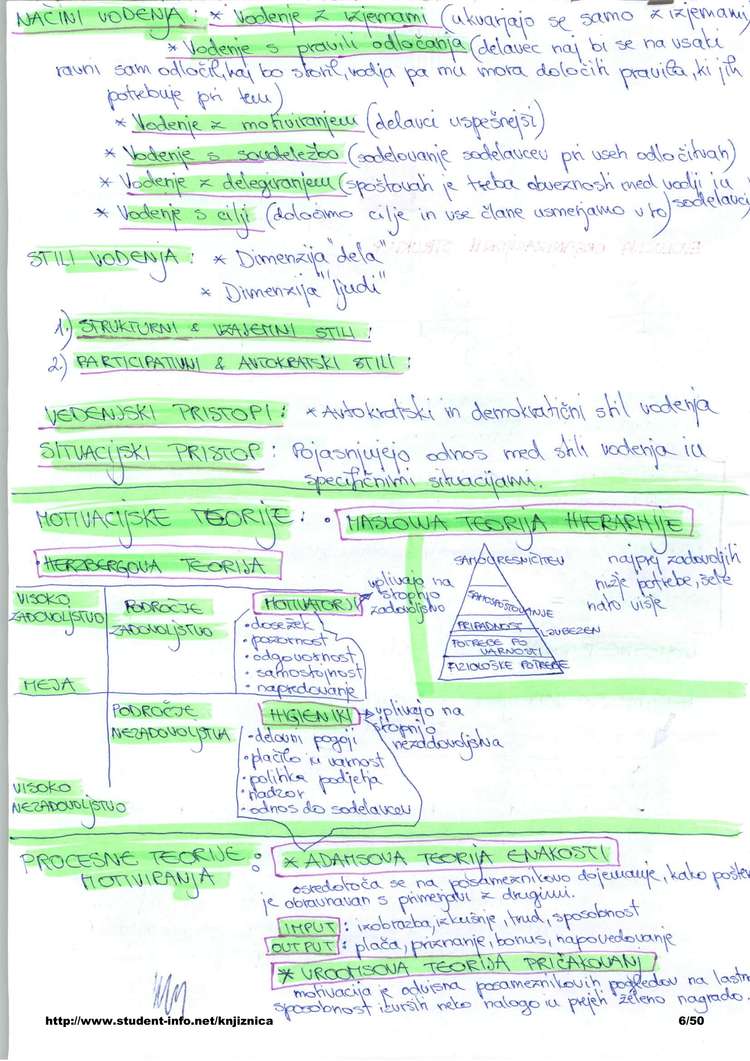 NAČINI VODENJA : * Vodenje z izjemami (ukvarjajo se samo z izjemami)
* Vodenje s pravili odločanja (delavec naj bi se na vsaki
ravni sam odločil, kaj bo storil, vodja pa mu mora določiti pravila, ki jih
potrebuje pri tem)
* Vodenje z motiviranjem (delavci uspešnejši)
* Vodenje s soudeležbo (sodelovanje sodelavcev pri vseh odločitvah)
* Vodenje z delegiranjem (spoštovati je treba obveznosti med vodji in
sodelavci
* Vodenje s cilji (določimo cilje in vse člane usmerjamo v to)
STILI VODENJA : * Dimenzija "dela"
* Dimenzija "ljudi"
1.) STRUKTURNI & VZAJEMNI STILI :
2.) PARTICIPATIVNI & AVTOKRATSKI STILI :
VEDENJSKI PRISTOPI : * Avtokratski in demokratični stil vodenja
SITUACIJSKI PRISTOP : Pojasnjujejo odnos med stili vodenja in
specifičnimi situacijami.
MOTIVACIJSKE TEORIJE : • MASLOWA TEORIJA HIERARHIJE
• HERZBERGOVA TEORIJA
VISOKO
ZADOVOLJSTVO
PODROČJE
ZADOVOLJSTVA
MOTIVATORJI
vplivajo na
stopnjo
zadovoljstva
• dosežek
• pozornost
• odgovornost
• samostojnost
• napredovanje
MEJA
SAMOURESNIČITEV
SAMOSPOŠTOVANJE
PRIPADNOST LJUBEZEN
POTREBE PO
VARNOSTI
FIZIOLOŠKE POTREBE
najprej zadovoljiti
nižje potrebe, šele
nato višje
PODROČJE
NEZADOVOLJSTVA
HIGIENIKI
vplivajo na
stopnjo
nezadovoljstva
• delovni pogoji
• plačilo in varnost
• politika podjetja
• nadzor
• odnos do sodelavcev
VISOKO
NEZADOVOLJSTVO
PROCESNE TEORIJE :
MOTIVIRANJA
* ADAMSOVA TEORIJA ENAKOSTI
osredotoča se na posameznikovo dojemanje, kako pošteno
je obravnavan s primerjavi z drugimi.
INPUT : izobrazba, izkušnje, trud, sposobnost
OUTPUT : plača, priznanje, bonus, napovedovanje
* VROOMSOVA TEORIJA PRIČAKOVANJ
motivacija je odvisna posameznikovih pogledov na lastno
sposobnost izvršiti neko nalogo in prejeti želeno nagrado.
http://www.student-info.net/knjiznica
6/50